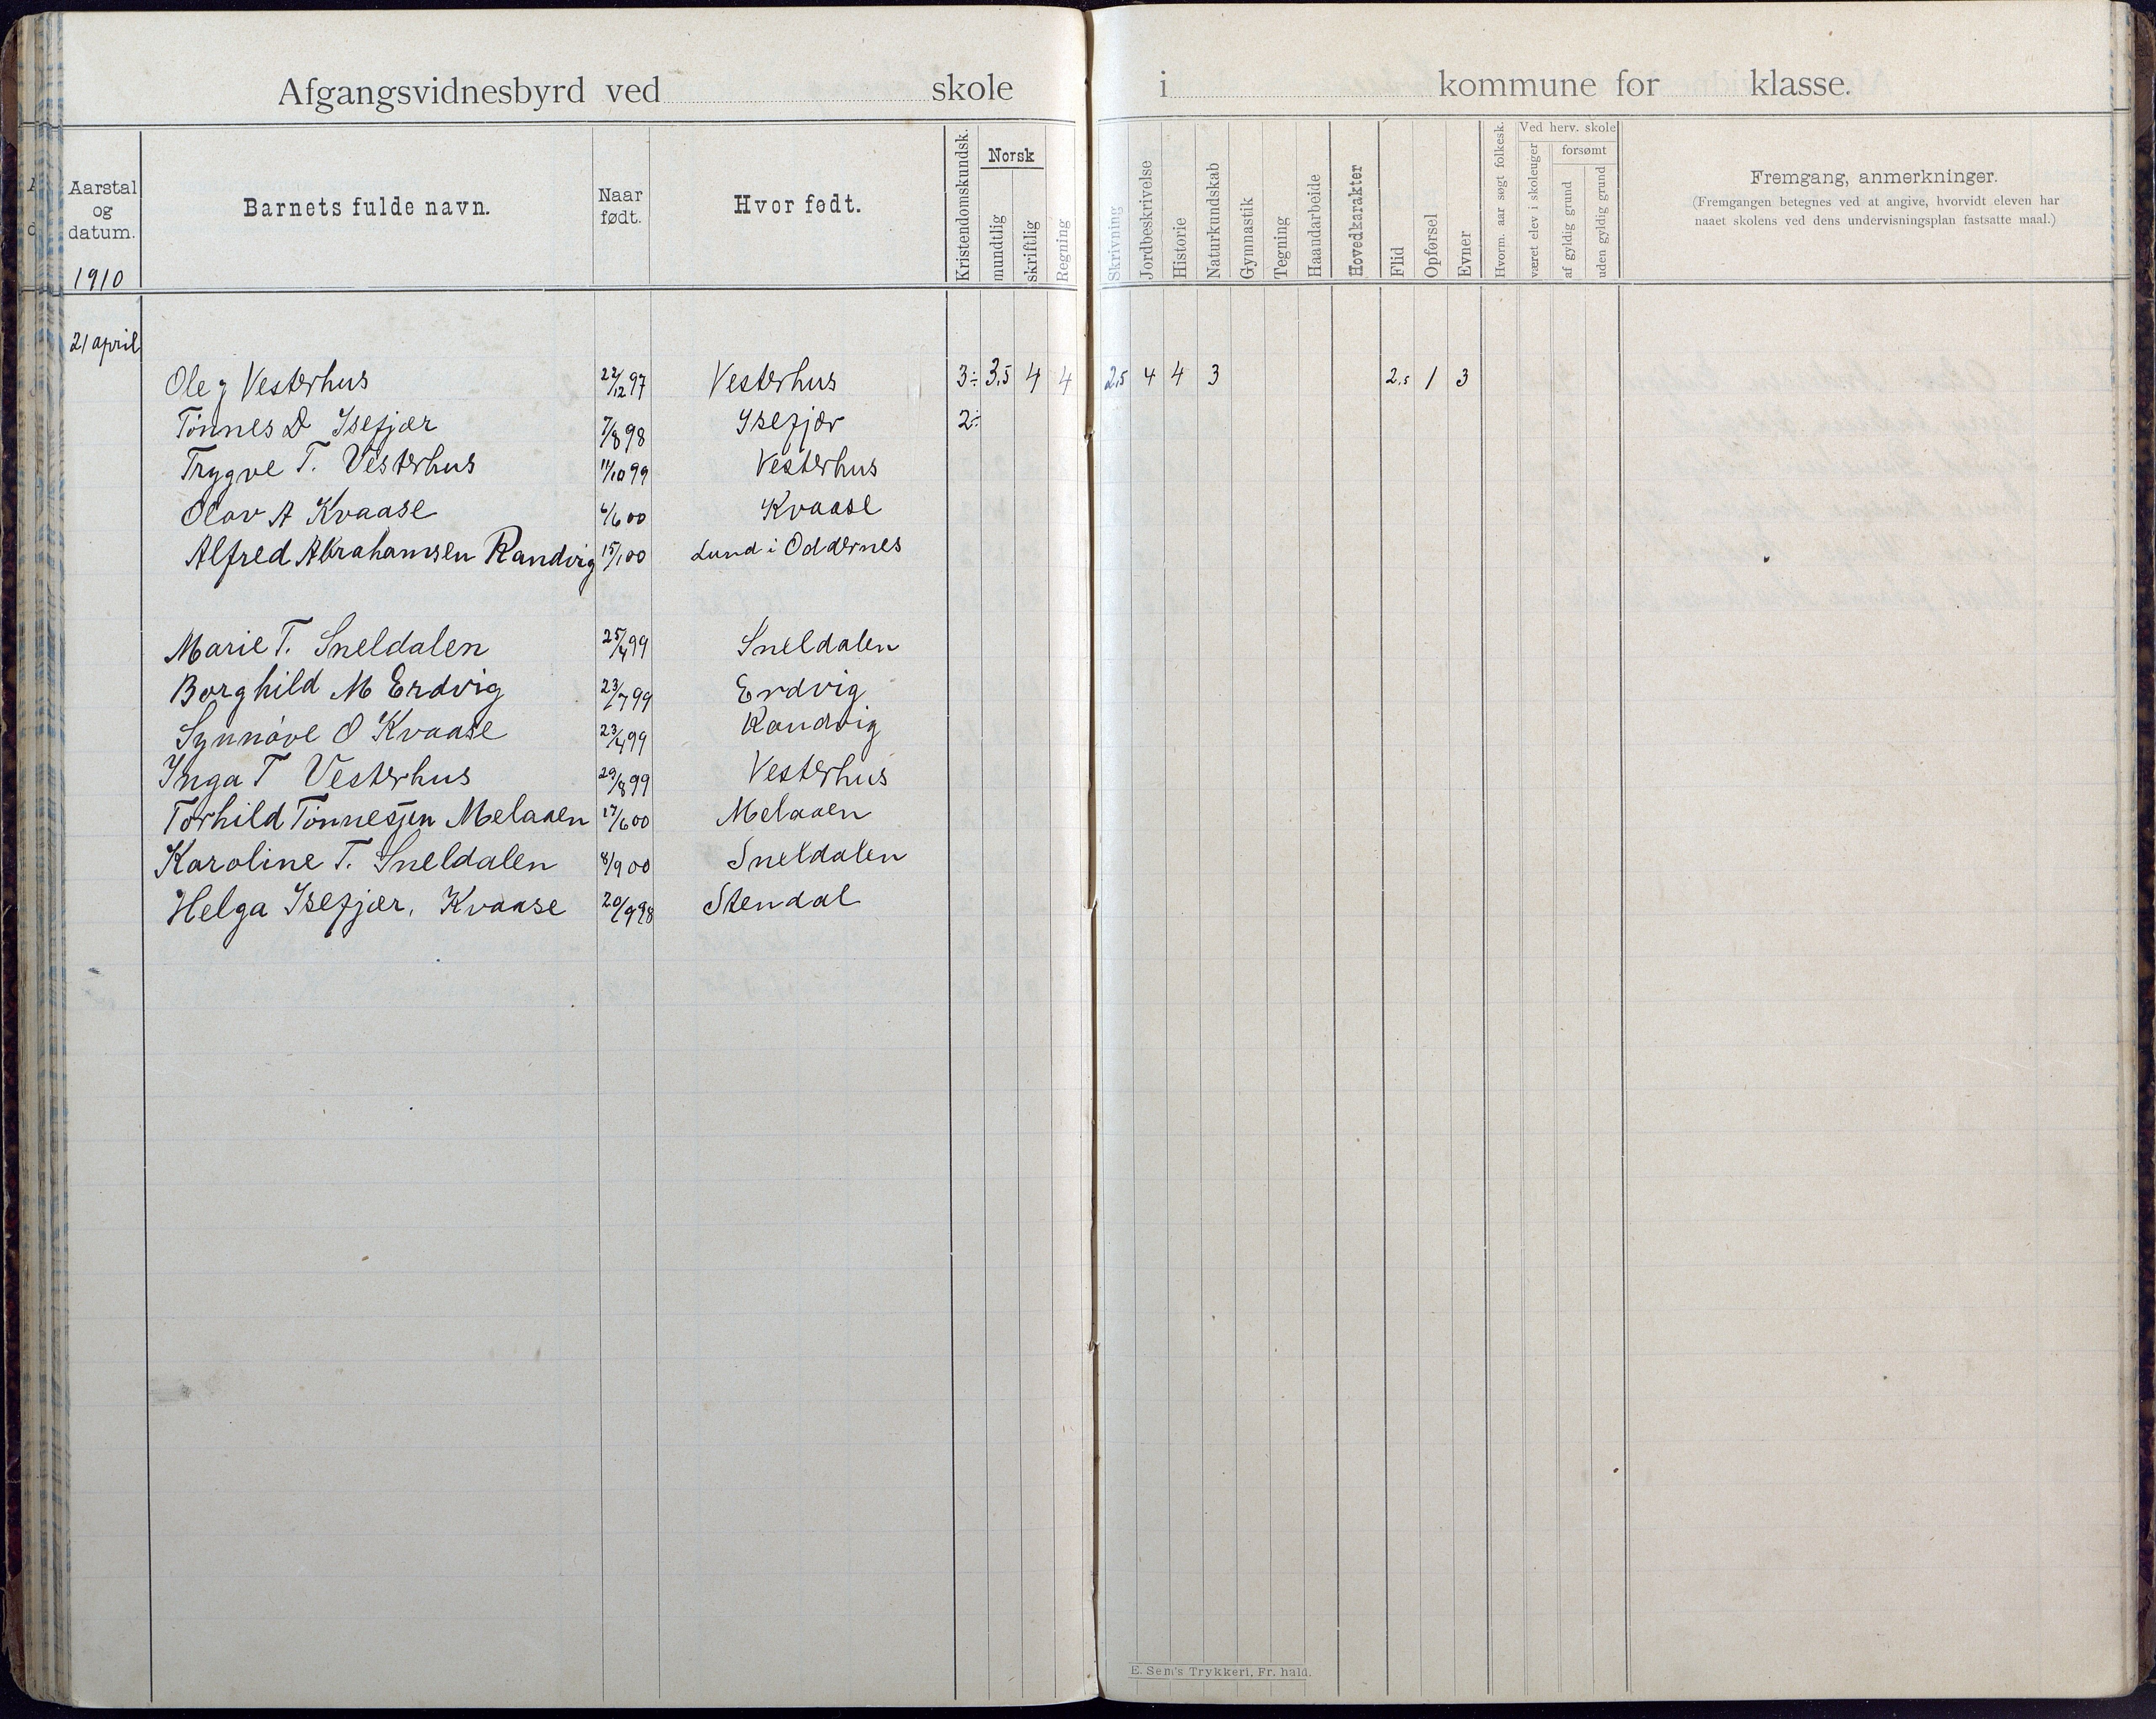 Afgangsvidnesbyrd ved skole i kommune for klasse.
Aarstal og datum. Barnets fulde navn. Naar født. Hvor født. Kristendomskundsk. Norsk mundtlig skriftlig Regning Skrivning Jordbeskrivelse Historie Naturkundskab Gymnastik Tegning Haandarbeide Hovedkarakter Flid Opførsel Evner Hvorm. aar søgt folkesk. Ved herv. skole været elev i skoleuger forsømt af gyldig grund uden gyldig grund Fremgang, anmerkninger.
(Fremgangen betegnes ved at angive, hvorvidt eleven har
naaet skolens ved dens undervisningsplan fastsatte maal.)
1910
21 april
Ole J Vesterhus 22/12 97 Vesterhus 3÷ 3,5 4 4 2,5 4 4 3 2,5 1 3
Tönnes D Isefjær 7/8 98 Isefjær 2÷
Trygve T. Vesterhus 11/10 99 Vesterhus
Olav A Kvaase 6/6 00 Kvaase
Alfred Abrahamsen Randvig 15/1 00 Lund i Oddernes
Marie T. Sneldalen 25/4 99 Sneldalen
Borghild M Erdvig 23/7 99 Erdvig
Synnöve O Kvaase 23/4 99 Randvig
Inga T Vesterhus 29/8 99 Vesterhus
Torhild Tönnesjen Melaaen 17/6 00 Melaaen
Karoline T. Sneldalen 8/9 00 Sneldalen
Helga Isefjær, Kvaase 20/9 98 Stendal
E. Sem's Trykkeri, Fr. hald.